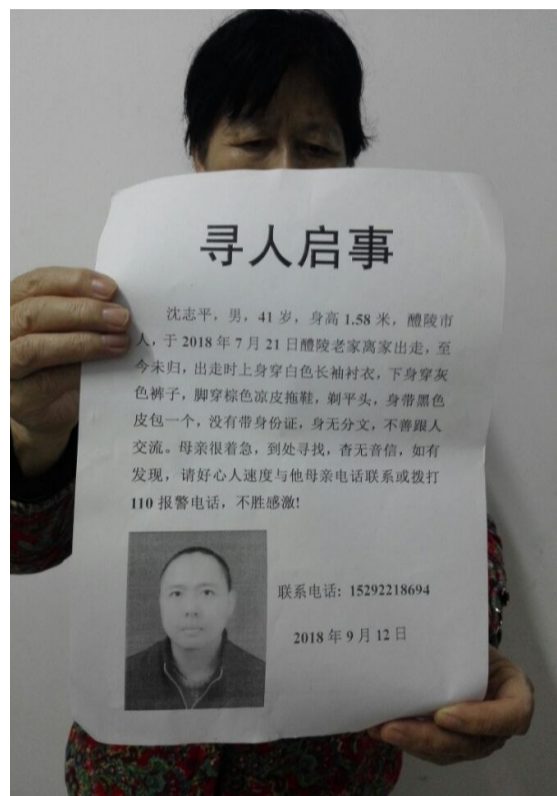 寻人启事
沈志平，男，41 岁，身高 1.58 米，醴陵市
人，于 2018 年 7 月 21 日醴陵老家离家出走，至
今未归，出走时上身穿白色长袖衬衣，下身穿灰
色裤子，脚穿棕色凉皮拖鞋，剃平头，身带黑色
皮包一个，没有带身份证，身无分文，不善跟人
交流。母亲很着急，到处寻找，杳无音信，如有
发现，请好心人速度与他母亲电话联系或拨打
110 报警电话，不胜感激!
联系电话: 15292218694
2018 年 9 月 12 日